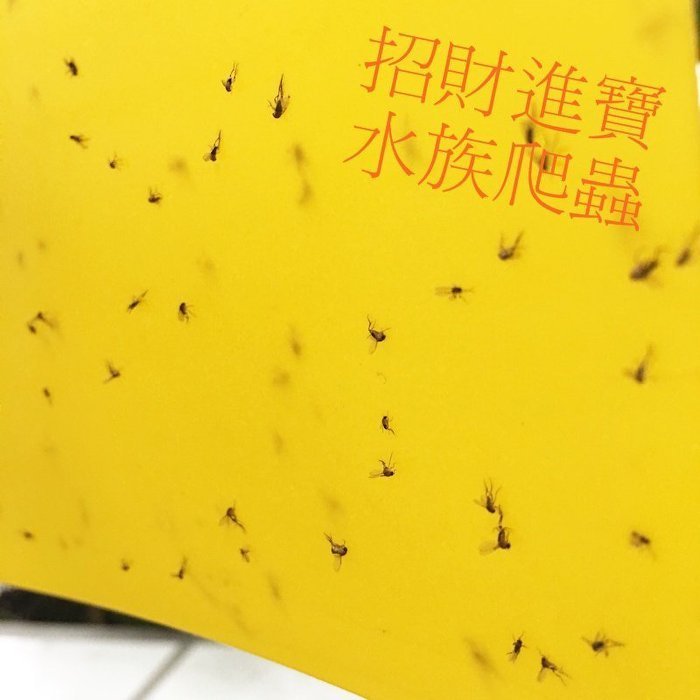 招財進寶
水族爬蟲